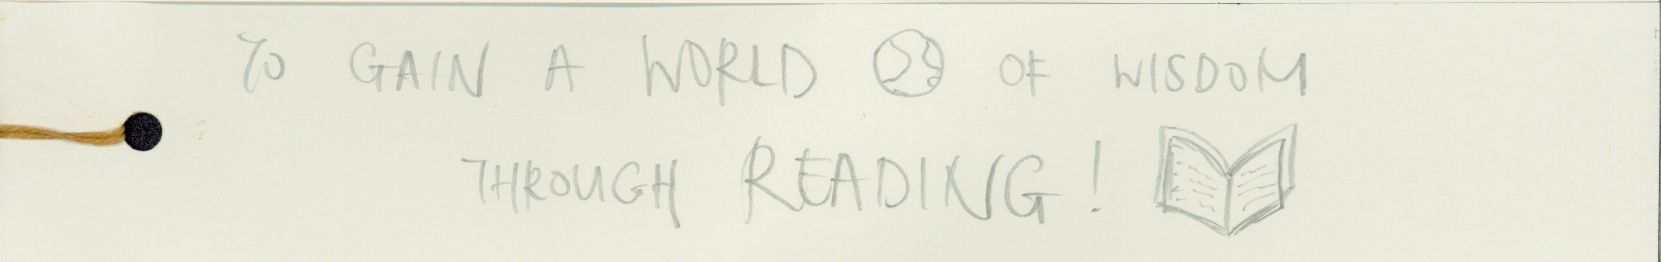 TO GAIN A WORLD OF WISDOM
THROUGH READING!